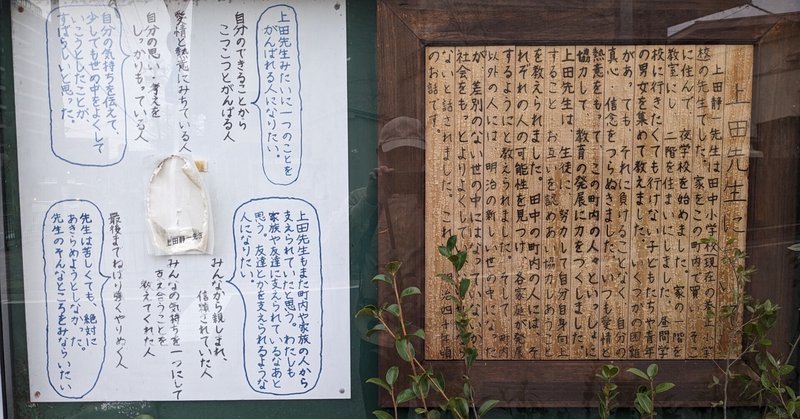 上田先生に
上田静一先生は田中小学校(現在の養正小学
校)の先生でした。家をこの町内で買い、そこ
に住んで、夜学校を始めました。家の一階を
教室にし、二階を住まいにしました。昼間学
校に行きたくても行けない子どもたちや青年
の男女を集めて教えました。いくつかの困難
があっても、それに負けることなく、自分の
真心、信念をつらぬきました。愛情と
熱意をもって、この町内の人々といっしょに
協力して、教育の発展に力をつくしました。
上田先生は、生徒に、努力して自分自身向上
すること、お互いを認めあい、協力しあうこと
を教えられました。田中の町内の人には、そ
れぞれの人の可能性を見つけ、各家庭が発展
するようにと教えられました。そして、町内
以外の人には、明治の新しい世の中になった
が、差別のない世の中にはなっていない。
社会をもっとよりよくして
ない、と話されました。これ 治四十年頃
のお話です。
上田先生みたいに一つのことを
がんばれる人になりたい。
自分のできることから
こつこつとがんばる人
愛情と熱意にみちている人
自分の思い・考えを
しっかりもっている人
自分の気持ちを伝えて、
少しでも世の中をよくして
いこうとしたことが、
すばらしいと思った。
上田静一先生
上田先生もまた町内や家族の人から
支えられていたと思う。わたしも
家族や友達に支えられているなあと
思う。友達とかを支えられるような
人になりたい。
みんなから親しまれ、
信頼されていた人
みんなの気持ちを一つにして
支え合うことを
教えてくれた人
最後までねばり強くやりぬく人
先生は苦しくても、絶対に
あきらめようとしなかった。
先生のそんなところをみならいたい